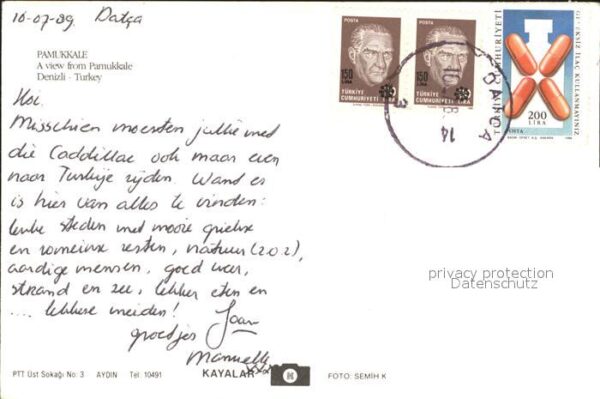 16-07-89. Datça
PAMUKKALE
A view from Pamukkale
Denizli - Turkey
Hoi.
Misschien moesten jullie met
die Caddillac ook maar een
naar Turkije rijden. Want er
is hier van alles te vinden:
leuke steden met mooie griekse
en romeinse resten, natuur (z.o.z.),
aardige mensen, goed weer,
strand en zee, lekker eten en
.... lekkere meiden!
groetjes Joan
Manuelle
POSTA POSTA
150 LIRA 150 LIRA
TÜRKİYE CUMHURİYETİ TÜRKİYE CUMHURİYETİ
GEREKSİZ İLAÇ KULLANMAYINIZ
TÜRKİYE CUMHURİYETİ
POSTA 200 LİRA
14
privacy protection
Datenschutz
PTT Üst Sokağı No. 3 AYDIN Tel 10491 KAYALAR FOTO: SEMİH K